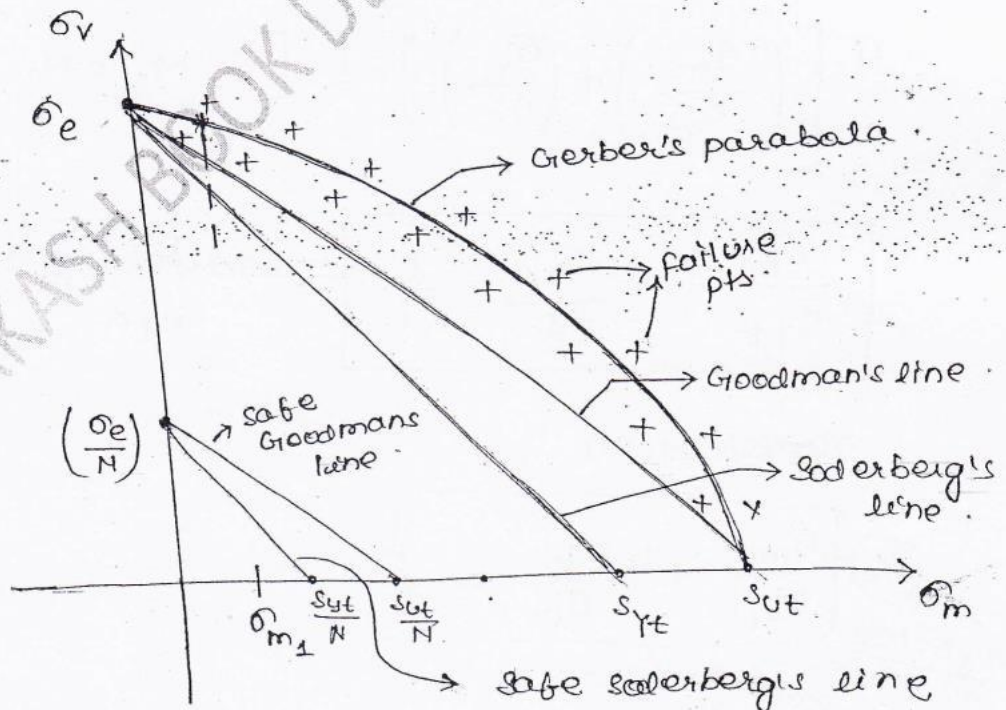 σv
σe
Gerber's parabola
failure
pts
Goodman's line
(σe/N)
safe
Goodmans
line
Soderberg's
line.
σm1
Syt/N
Sut/N
Syt
Sut
σm
safe soderberg's line